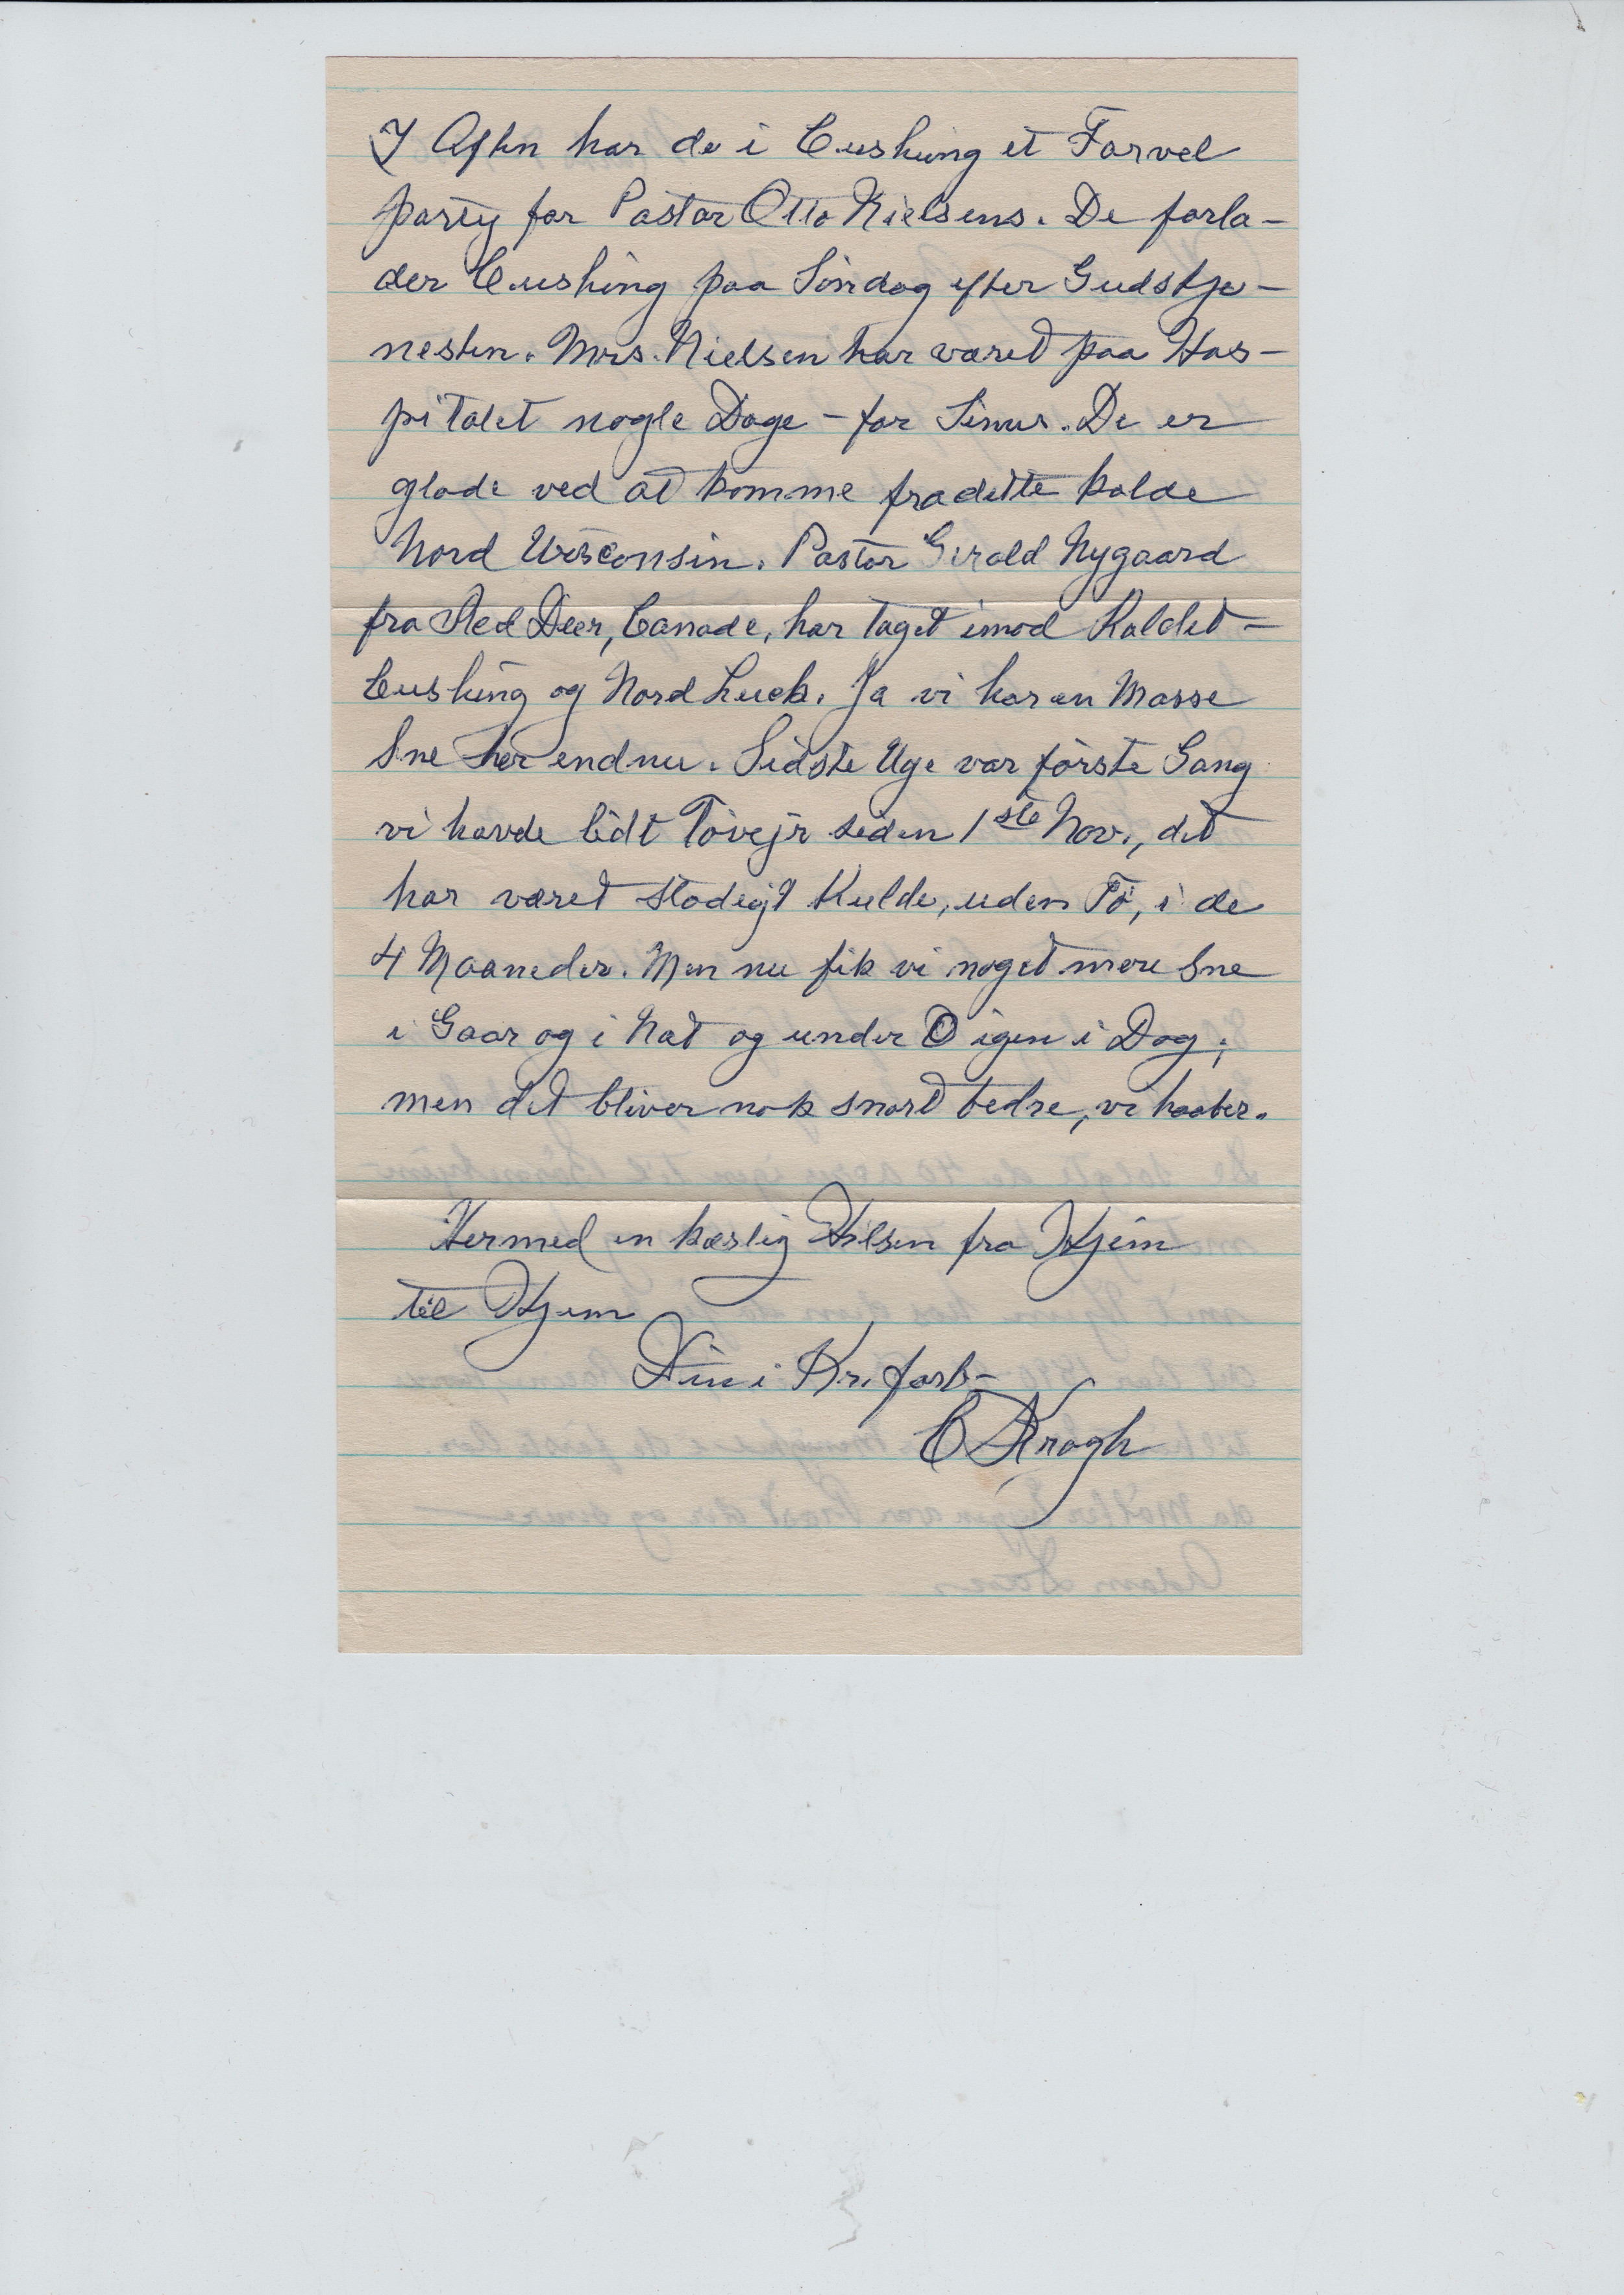 I Aften har de i Cushing et Farvel
party for Pastor Otto Nielsens. De forla-
der Cushing paa Söndag efter Gudstje-
nesten. Mrs. Nielsen har været paa Hos-
pitalet nogle Dage - for Sinus. De er
glade ved at komme fra dette kolde
Nord Wisconsin. Pastor Gerald Nygaard
fra Red Deer, Canada, har taget imod Kaldet -
Cushing og Nord Luck. Ja vi har en Masse
Sne her endnu. Sidste Uge var förste Gang
vi havde lidt Tövejr siden 1ste Nov., det
har været stadigt Kulde, uden Tö, i de
4 Maaneder. Men nu fik vi noget mere Sne
i Gaar og i Nat og under 0 igen i Dag;
men det bliver nok snart bedre, vi haaber.
Hermed en kærlig Hilsen fra Hjem
til Hjem
Din i Kr. forb-
C Krogh